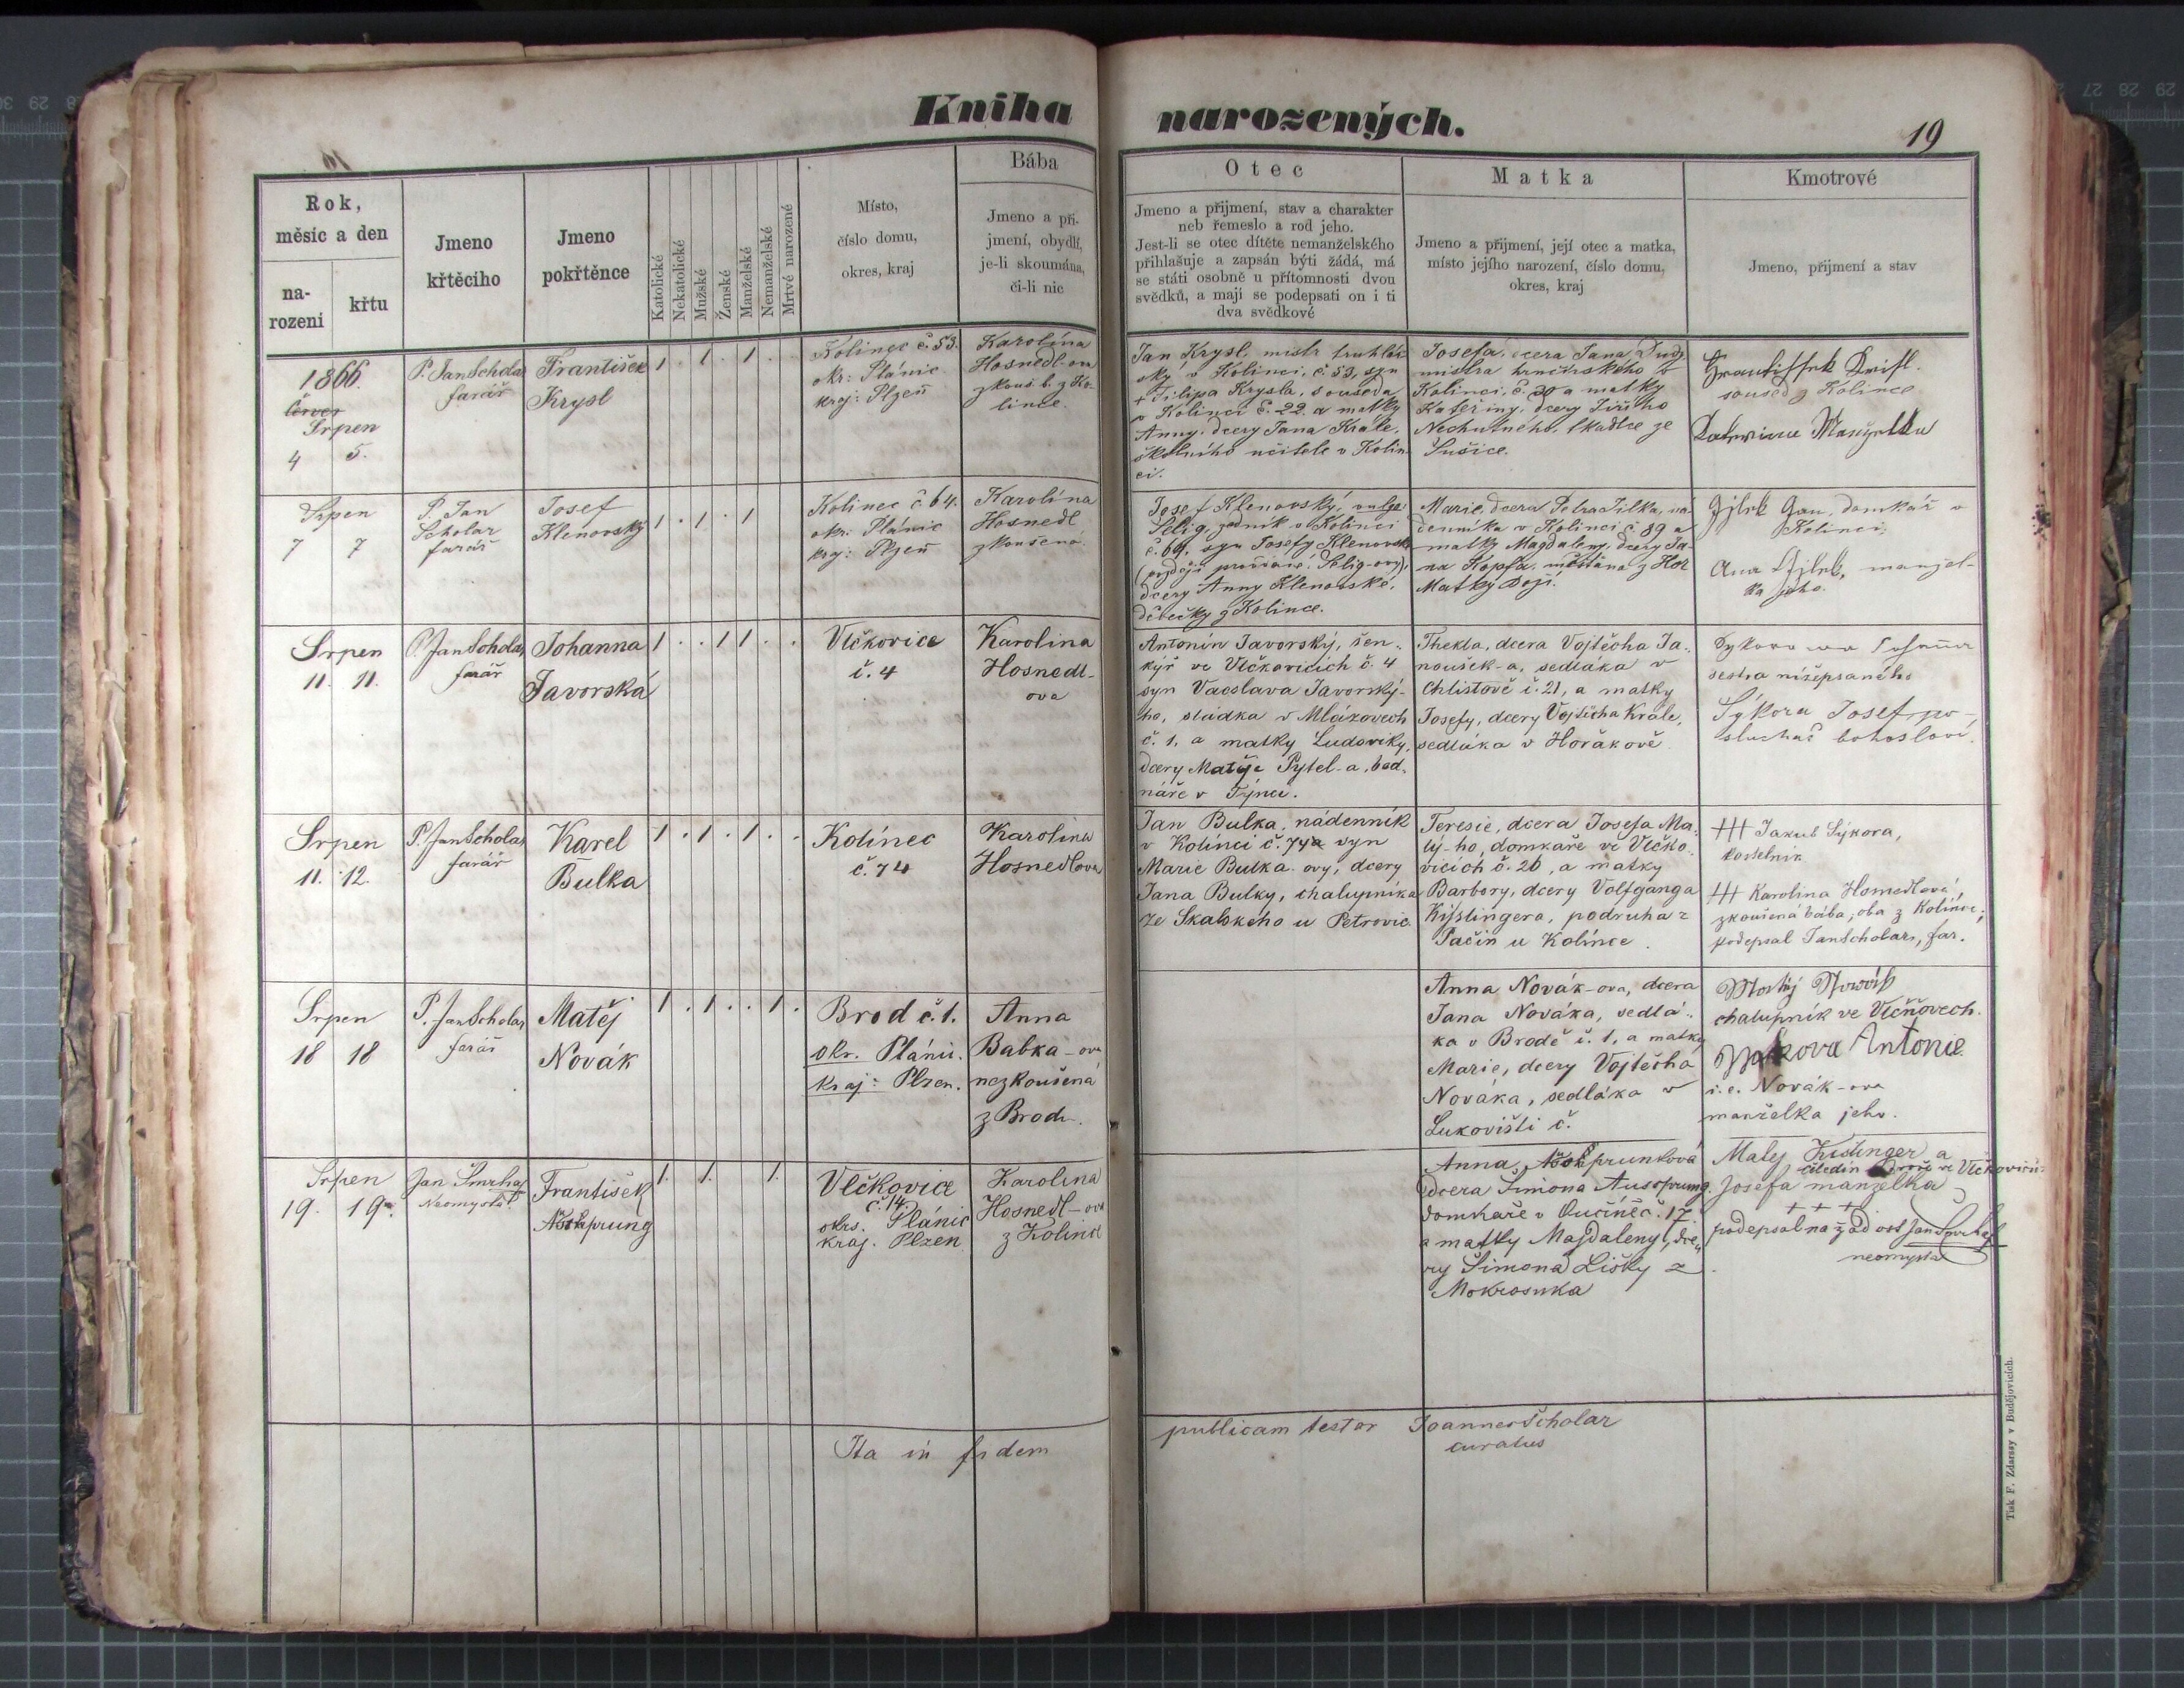 Kniha narozených.
19
Rok,
měsíc a den
na-
rozeni
křtu
Jmeno
křtěcího
Jmeno
pokřtěnce
Katolické
Nekatolické
Mužské
Ženské
Manželské
Nemanželské
Mrtvé narozené
Místo,
číslo domu,
okres, kraj
Bába
Jmeno a při-
jmení, obydlí,
je-li skoumána,
či-li nic
Otec
Jmeno a přijmení, stav a charakter
neb řemeslo a rod jeho.
Jest-li se otec dítěte nemanželského
přihlašuje a zapsán býti žádá, má
se státi osobně u přítomnosti dvou
svědků, a mají se podepsati on i ti
dva svědkové
Matka
Jmeno a přijmení, její otec a matka,
místo jejího narození, číslo domu,
okres, kraj
Kmotrové
Jmeno, přijmení a stav
1866.
Srpen
4 5.
P. Jan Scholar
farář
František
Krysl
1 . 1 . 1 . .
Kolinec č. 53.
okr: Plánic
kraj: Plzeň
Karolína
Hosnedl-ova
zkouš. b. z Ko-
lince.
Jan Krysl, mistr truhlář-
ský v Kolinci, č. 53, syn
+ Filipa Krysla, souseda
v Kolinci č. 22. a matky
Anny, dcery Jana Krále,
školního učitele v Kolin-
ci.
Josefa, dcera Jana
mistra
Kolinci, č. 20 a matky
Kateřiny, dcery Jiřího
Nechutného, tkadlce ze
Sušice.
soused z Kolince
Srpen
7 7
P. Jan
Scholar
farář
Josef
Klenovský
1 . 1 . 1
Kolinec č 64.
okr. Plánic
kraj: Plzeň
Karolína
Hosnedl
zkoušená.
Josef Klenovský, vulgo:
Selig, zedník v Kolinci
č. 64, syn Josefy Klenovské
(později provdané Selig-ovy),
dcery Anny Klenovské,
děvečky z Kolince.
Marie, dcera Petra Jílka, ná-
denníka v Kolinci č. 89 a
matky Magdaleny, dcery Ja-
na Kopfa, měšťana z Hor
Matky Boží.
Gjlek Gan, domkář v
Kolinci,
Ana Gjlek, manžel-
ka jeho.
Srpen
11. 11.
P. Jan Scholar
farář
Johanna
Javorská
1 . . 1 1 . .
Vlčkovice
č. 4
Karolina
Hosnedl-
ova
Antonín Javorský, šen-
kýř ve Vlčkovicích č. 4
syn Vacslava Javorský-
ho, sládka v Mlázovech
č. 1, a matky Ludoviky,
dcery Matěje Pytel-a, bed-
náře v Týnci.
Thekla, dcera Vojtěcha Ja-
noušek-a, sedláka v
Chlistově č. 21, a matky
Josefy, dcery Vojtěcha Krále,
sedláka v Hořákově
sestra nížepsaného
Sýkora Josef, po-
sluchač bohosloví.
Srpen
11. 12.
P. Jan Scholar
farář
Karel
Bulka
1 . 1 . 1 . .
Kolínec
č. 74
Karolina
Hosnedlova
Jan Bulka, nádenník
v Kolinci č. 74 a syn
Marie Bulka-ovy, dcery
Jana Bulky, chalupníka
ze Skalského u Petrovic.
Teresie, dcera Josefa Ma-
lý-ho, domkáře ve Vlčko-
vicích č. 20, a matky
Barbory, dcery Volfganga
Kisslingera, podruha z
Pačin u Kolínce.
+++ Jakub Sýkora,
kostelník
+++ Karolina Hosnedlová,
zkoušená bába, oba z Kolínce;
podepsal Jan Scholar, far.
Srpen
18 18
P. Jan Scholar
farář
Matěj
Novák
1 . 1 . . 1 .
Brod č. 1.
okr. Plánic.
kraj: Plzen.
Anna
Babka-ova
nezkoušená
z Brodu.
Anna Novák-ova, dcera
Jana Nováka, sedlá-
ka v Brodě č. 1, a matky
Marie, dcery Vojtěcha
Nováka, sedláka v
Lukovišti č.
Matěj Nowák
chalupník ve Vlčňovech.
Antonie
i. e. Novák-ova
manželka jeho.
Srpen
19. 19.
Jan Smrha
Neomysta
František
1. 1. 1.
Vlčkovice
č. 14.
okrs. Plánic
kraj. Plzen
Karolina
Hosnedl-ova
z Kolince
Anna
dcera Šimona Aussprung
domkáře v Lučině č. 17
a matky Majdaleny, dce-
ry Šimona Lišky z
Mokrosuka
Matěj Kislinger a
čeledín ve Vlčkovicích
Josefa manželka
+ + +
podepsal na žádost Jan Smrha
neomysta
Ita in fidem publicam testor Joannes Scholar
curatus
Tisk F. Zdarssy v Budějovicích.